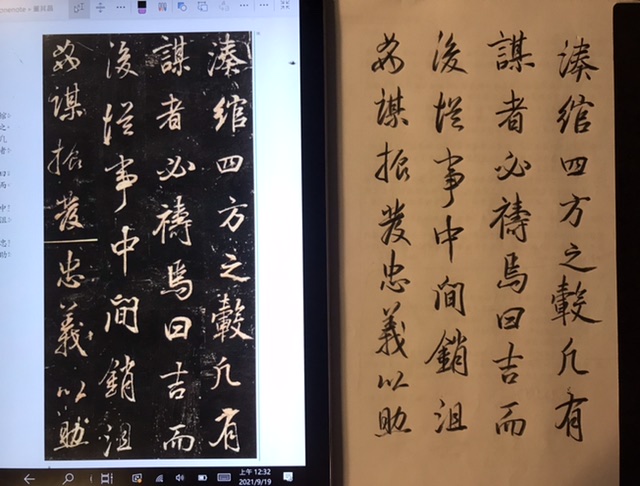 onenote - 董其昌
湊綰四方之轂凡有
謀者必禱焉曰吉而
後從事中間銷沮
姦謀振發忠義以助
上午 12:32
2021/9/19
湊綰四方之轂凡有
謀者必禱焉曰吉而
後從事中間銷沮
姦謀振發忠義以助